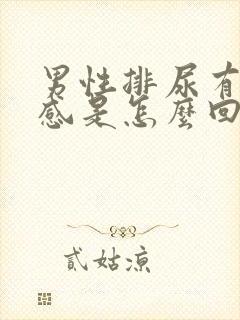 男性排尿有
感是怎麼回
貳姑涼